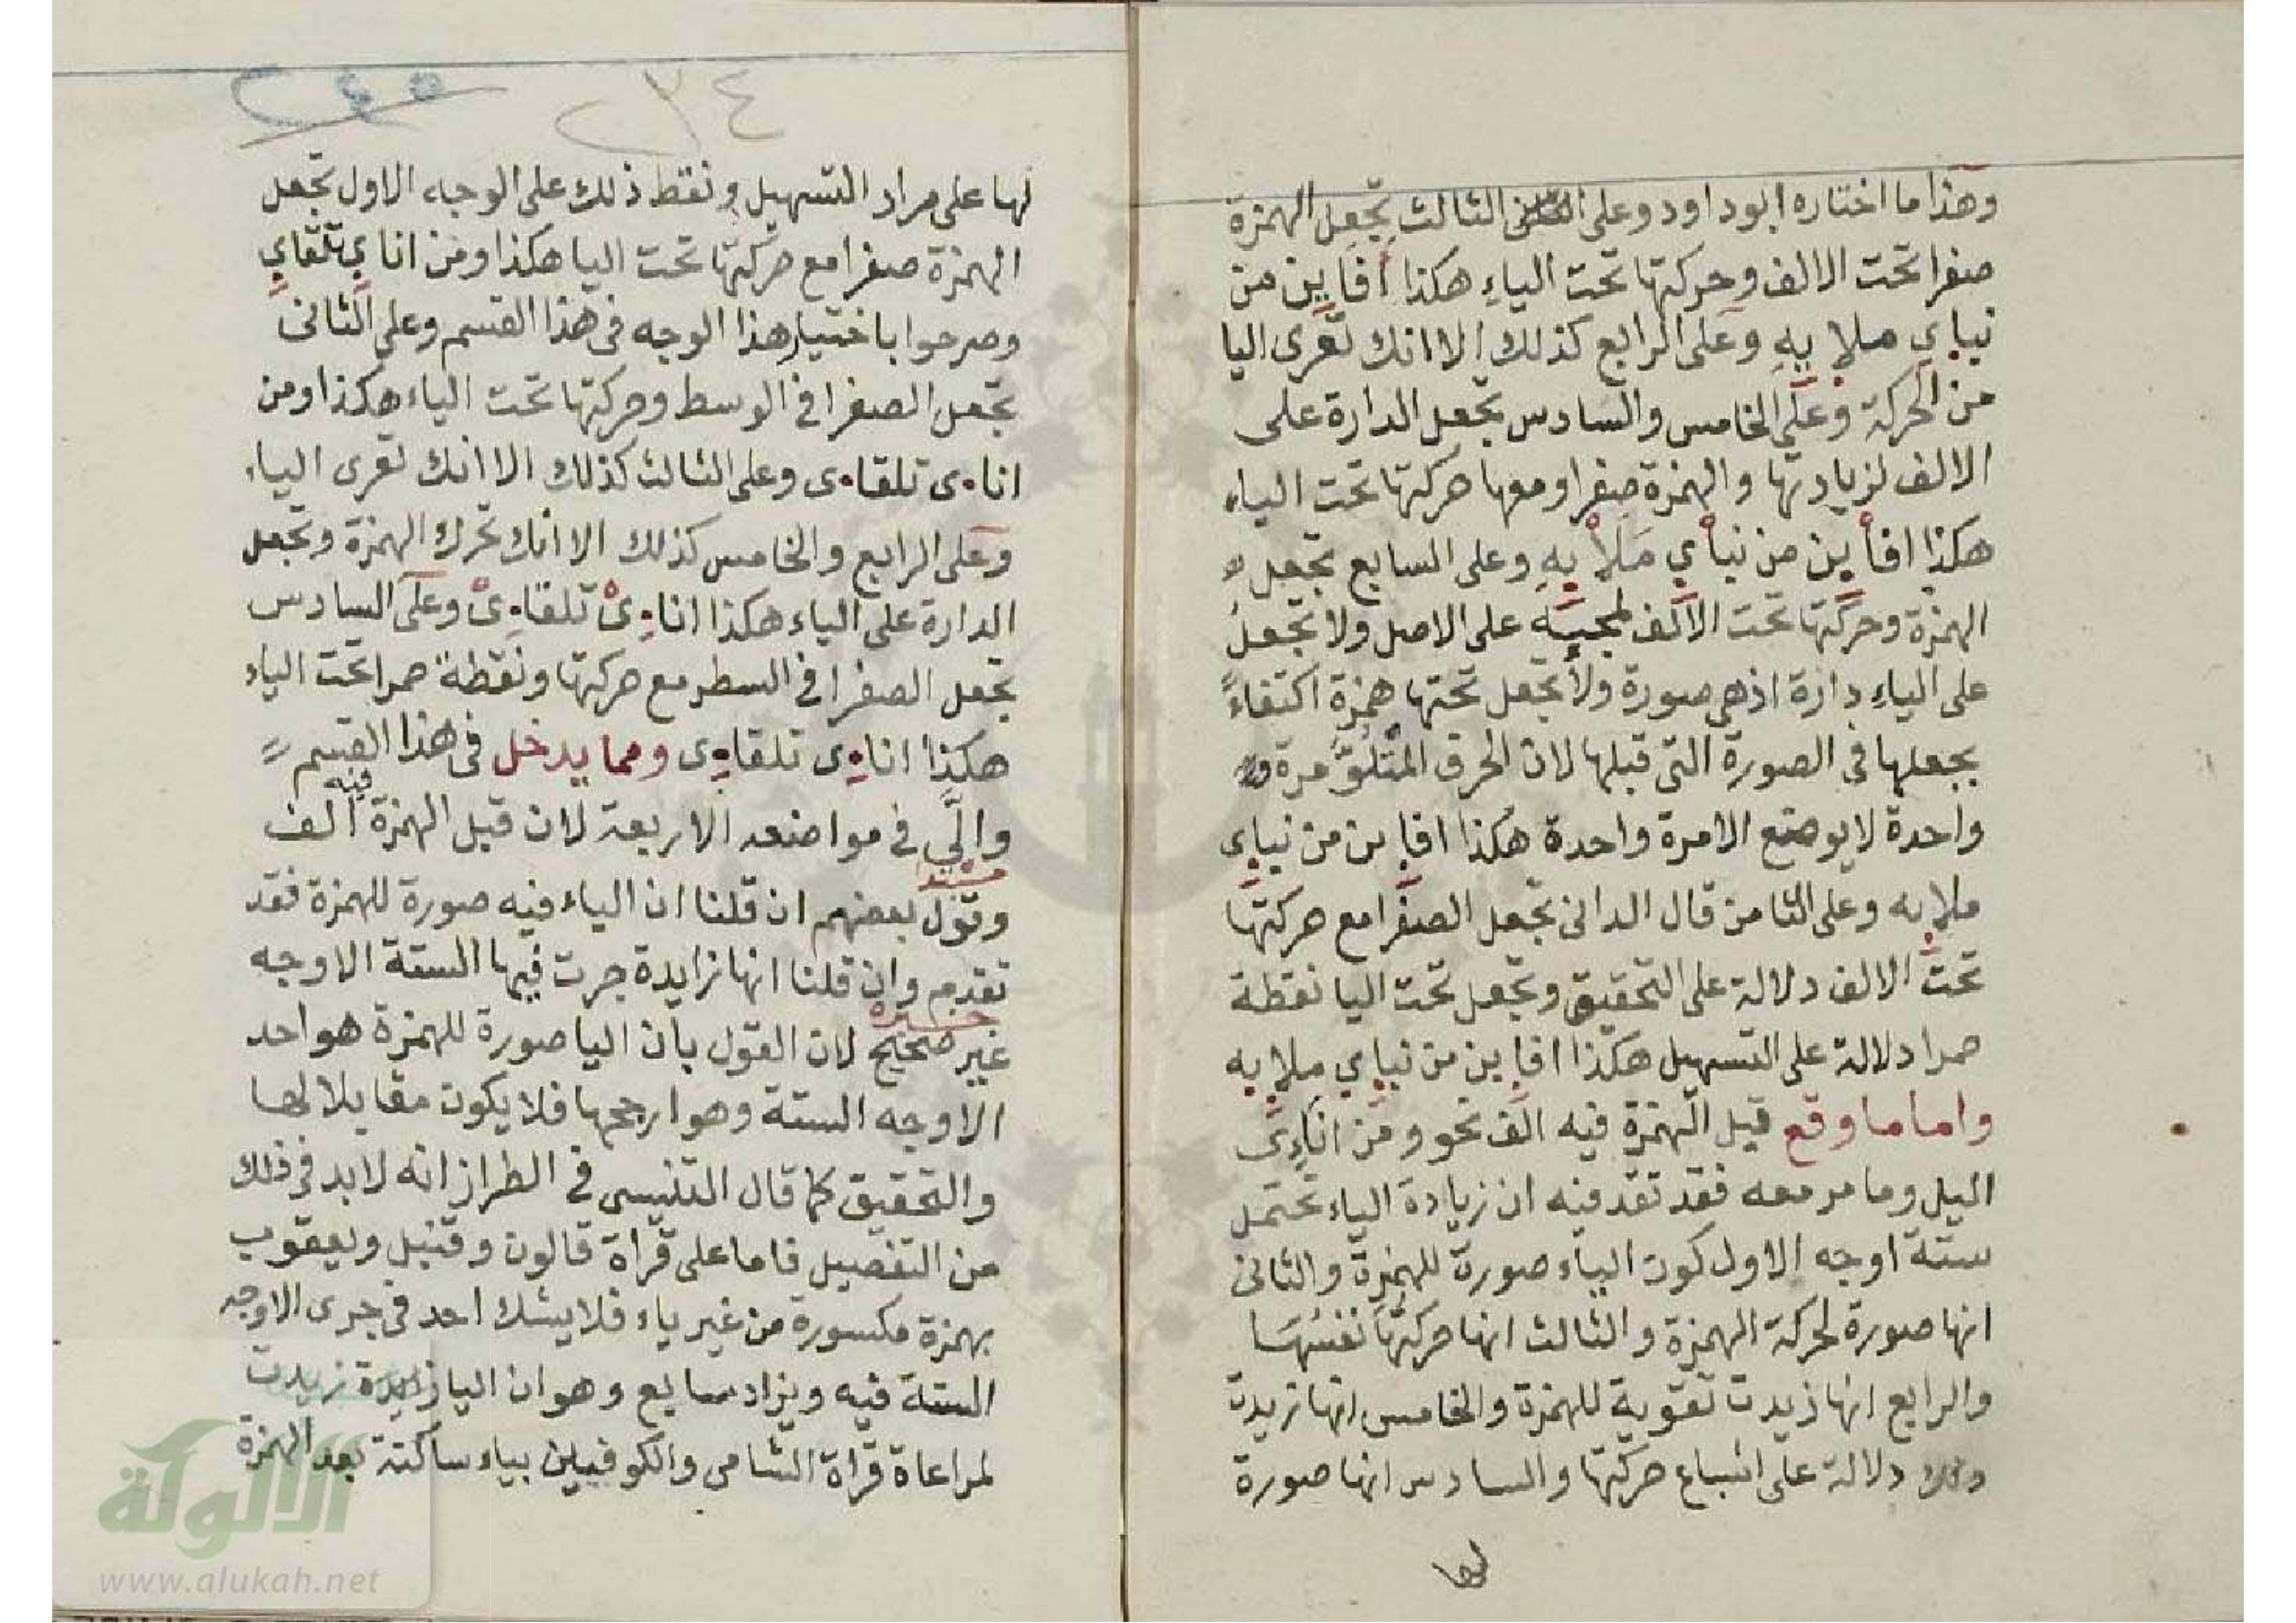 وهذا ما اختاره ابو داود وعلى الثالث تجعل الهمزة
صفرا تحت الالف وحركتها تحت الياء هكذا أفاين من
نباي ملايه وعلى الرابع كذلك الا انك تعرى اليا
من الحركة وعلى الخامس والسادس تجعل الدارة على
الالف لزيادتها والهمزة صفرا ومعها حركتها تحت الياء
هكذا افأين من نبأي ملأيه وعلى السابع تجعل
الهمزة وحركتها تحت الالف لمجيه على الاصل ولا تجعل
على الياء دارة اذ هي صورة ولا تجعل تحتها همزة اكتفاءً
بجعلها في الصورة التي قبلها لان الحرف المتلو مرة
واحدة لا يوضع الا مرة واحدة هكذا افاين من نباى
ملايه وعلى الثامن قال الدانى تجعل الصفرا مع حركتها
تحت الالف دلالة على التحقيق وتجعل تحت اليا نقطة
حمرا دلالة على التسهيل هكذا افاين من نباي ملايه
واما ما وقع قبل الهمزة فيه الف نحو ومن اناءى
اليل وما مر معه فقد تقد فيه ان زيادة الياء تحتمل
ستة اوجه الاول كون الياء صورة للهمزة والثانى
انها صورة لحركة الهمزة والثالث انها حركتها نفسها
والرابع انها زيدت تقوية للهمزة والخامس انها زيدت
دلالة على اشباع حركتها والسادس انها صورة
لها
٢٤٥
٢٣٤
لها على مراد التسهيل ونقط ذلك على الوجه الاول تجعل
الهمزة صفرا مع حركتها تحت اليا هكذا ومن اناي تلقاي
وصرحوا باختيار هذا الوجه فى هذا القسم وعلى الثانى
تجعل الصفرا في الوسط وحركتها تحت الياء هكذا ومن
اناءى تلقاءى وعلى الثالث كذلك الا انك تعرى الياء
وعلى الرابع والخامس كذلك الا انك تحرك الهمزة وتجعل
الدارة على الياء هكذا اناءى تلقاءى وعلى السادس
تجعل الصفرا في السطر مع حركتها ونقطة حمرا تحت الياء
هكذا اناءى تلقاءى ومما يدخل فى هذا القسم
والّي في مواضعه الاربعة لان قبل الهمزة فيه الف
وقول بعضهم ان قلنا ان الياء فيه صورة للهمزة فقد
تقدم وان قلنا انها زايدة جرت فيها الستة الاوجه
غير صحيح لان القول بان اليا صورة للهمزة هو احد
الاوجه الستة وهو ارجحها فلا يكون مقابلا لها
والتحقيق كما قال التنيسى في الطراز انه لابد في ذلك
من التفصيل فاما على قراة قالون وقنبل ويعقوب
بهمزة مكسورة من غير ياء فلا يشك احد في جرى الاوجه
الستة فيه ويزاد سابع وهو ان اليا زايدة زيدت
لمراعاة قراة الشامى والكوفيين بياء ساكنة بعد الهمزة
الألوكة
www.alukah.net